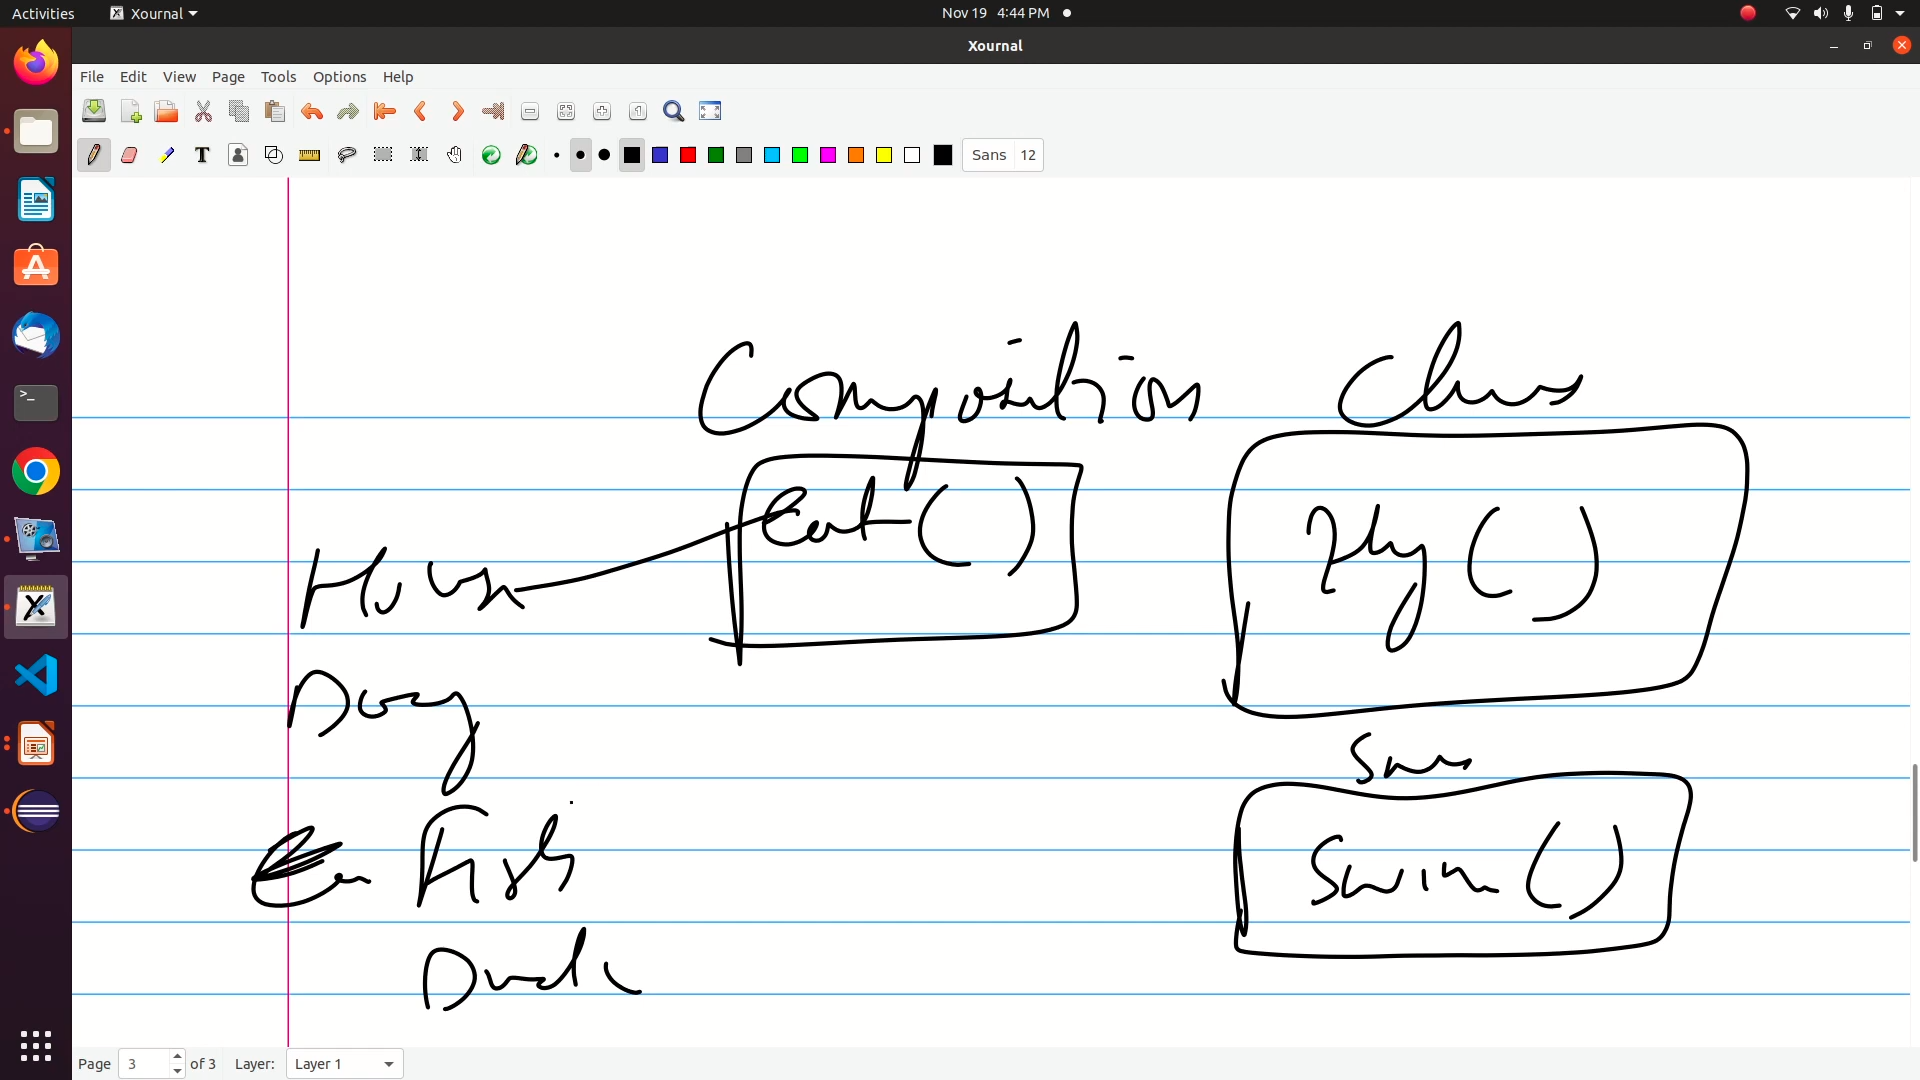 Activities Xournal Nov 19 4:44 PM
Xournal
File Edit View Page Tools Options Help
T Sans 12
Composition Class
Eat ()
Fly ()
Horse
Dog
Swim
Fish
Swim ()
Duck
Page 3 of 3 Layer: Layer 1